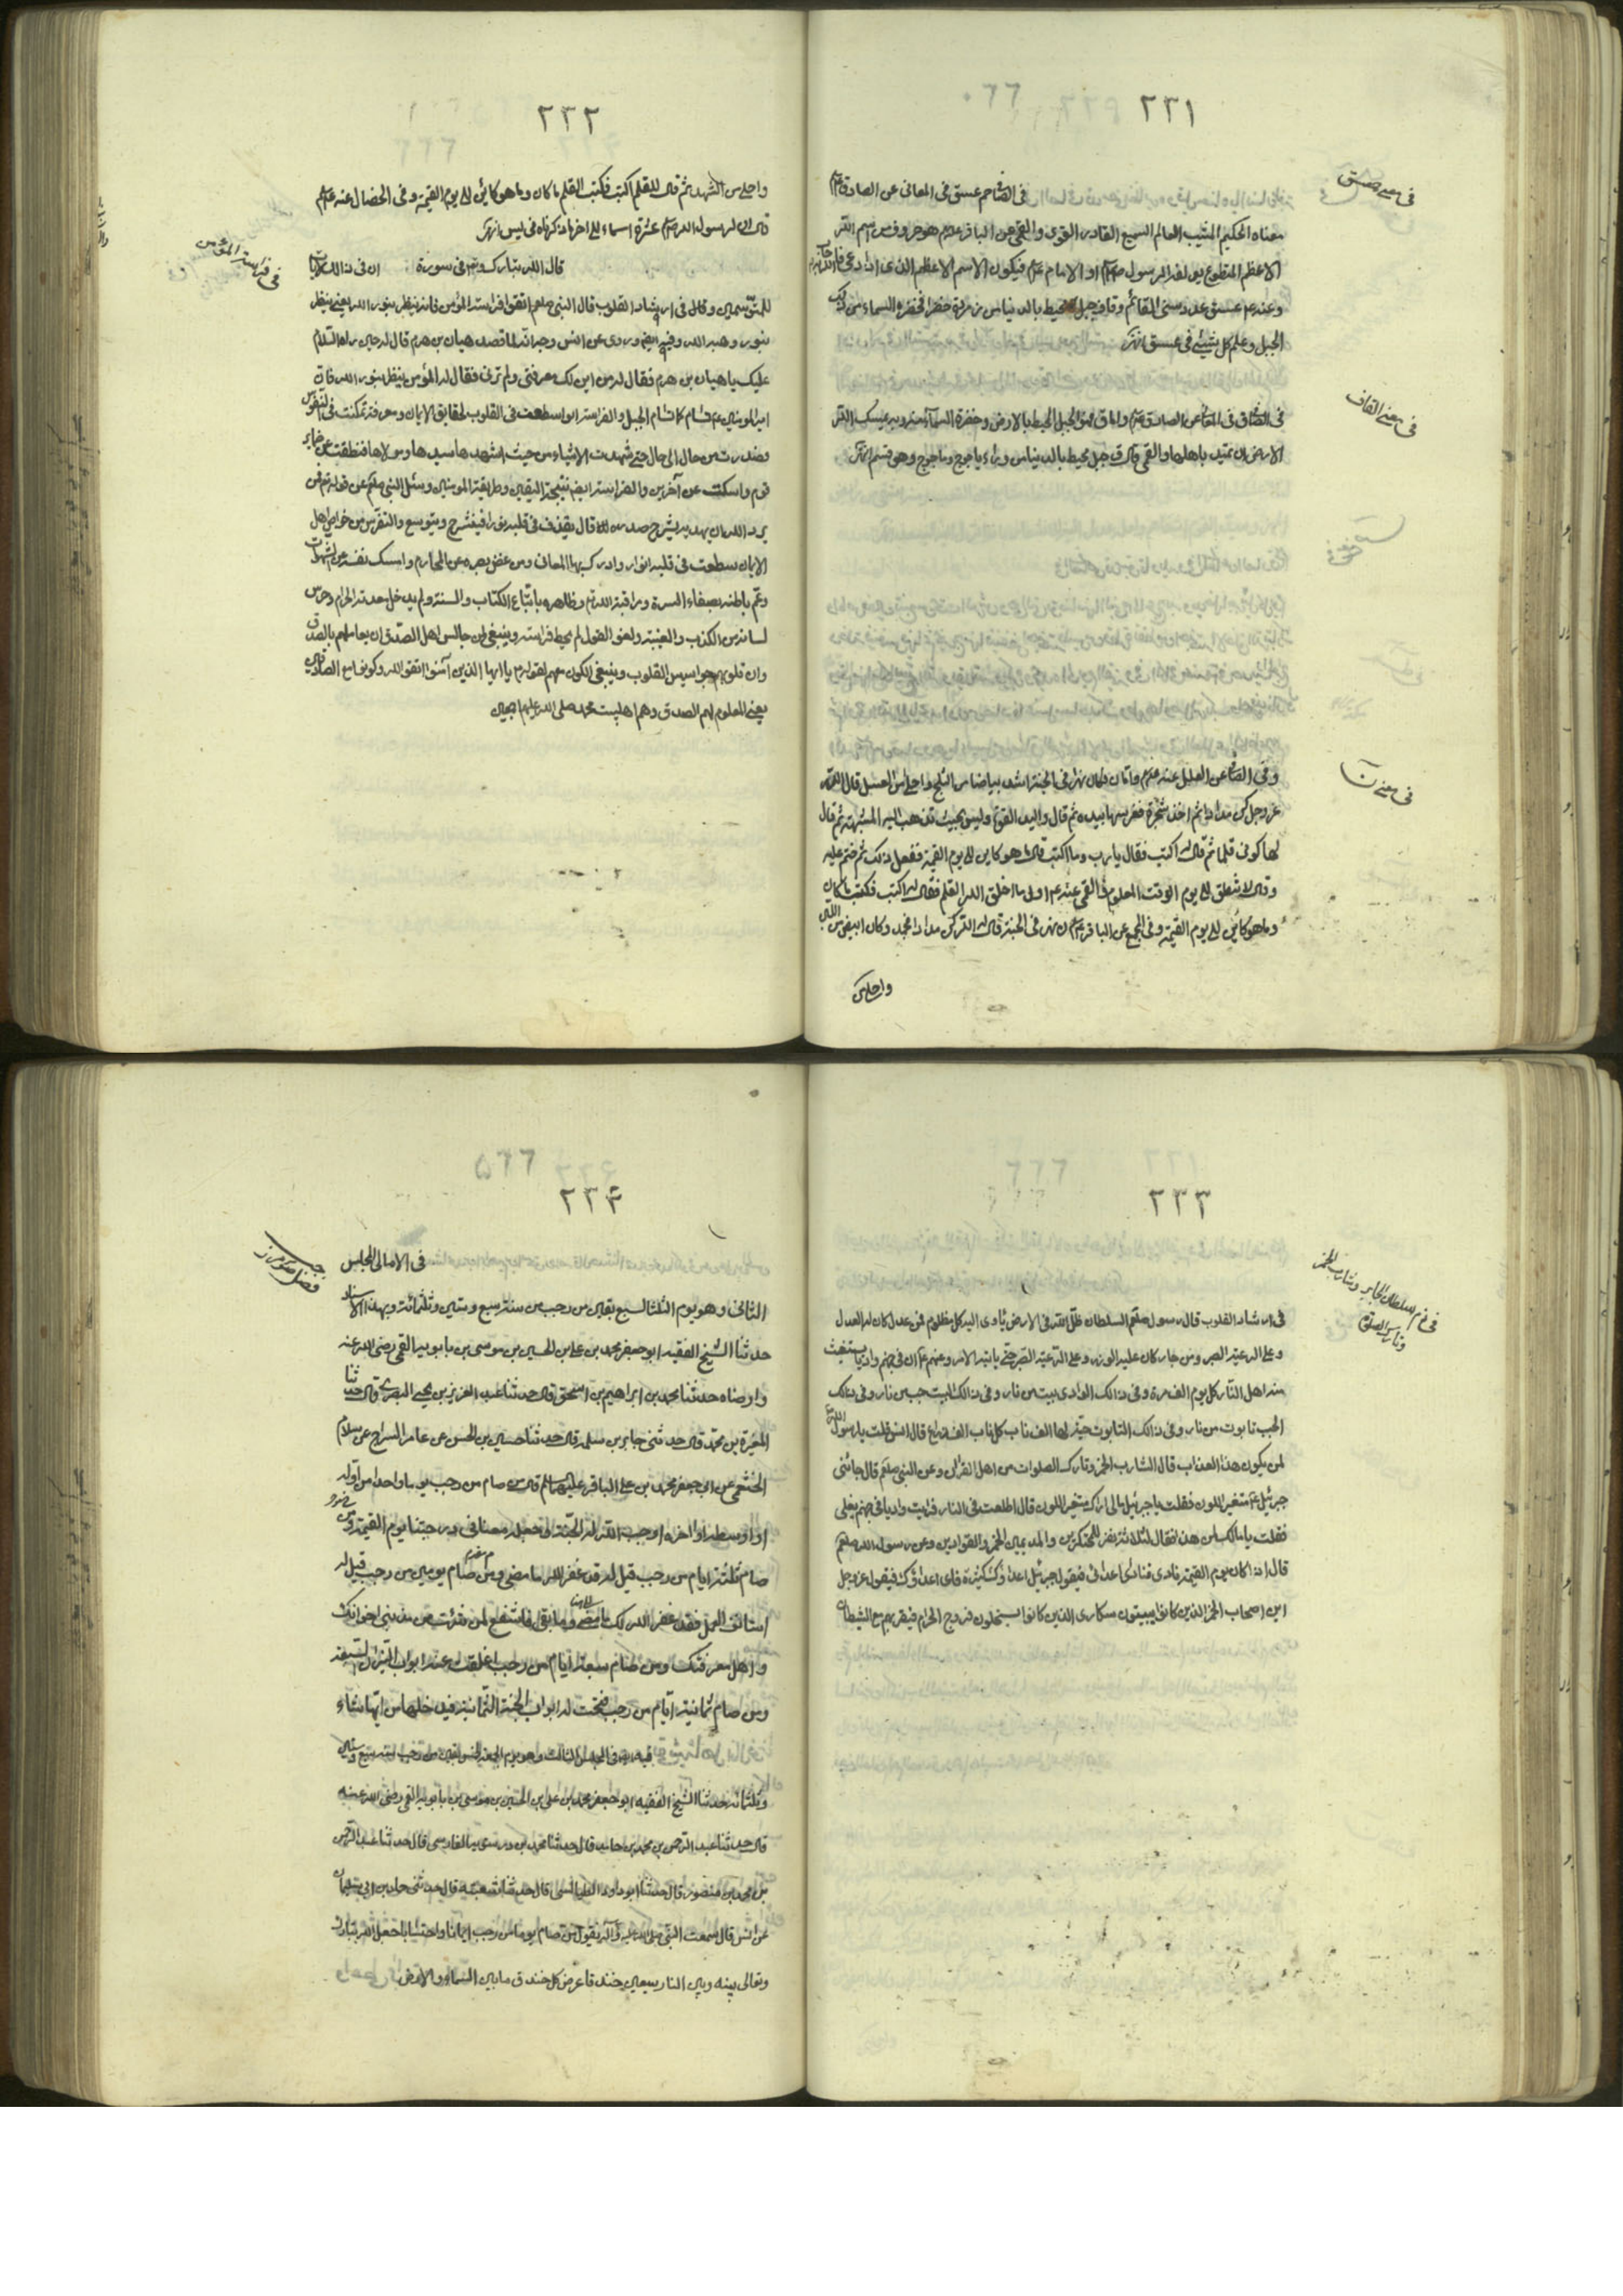 ٢٣١
فى معنى حمعسق
فى الصافى حم عسق فى المعانى عن الصادق
معناه الحكيم المثيب العالم السميع القادر القوى والقمى عن الباقر هو حروف من اسم الله
الاعظم المقطوع يولفه الرسول او الامام فيكون الاسم الاعظم الذى اذا دعى الله به اجاب
وعنه عسق عدد سنى القائم وقاف جبل محيط بالدنيا من زمردة خضرا فخضرة السماء من ذلك
الجبل وعلم كل شيئ فى عسق انتهى
فى معنى القاف
فى الصافى فى المعانى عن الصادق واما ق فهو الجبل المحيط بالارض وخضرة السماء منه وبه يمسك الله
الارض ان تميد باهلها والقمى قال ق جبل محيط بالدنيا من وراء ياجوج وماجوج وهو قسم انتهى
فى معنى ن
وفى الصافى عن العلل عنه واما ن فكان نهرا فى الجنة اشد بياضا من الثلج واحلى من العسل قال الله
عزوجل كن مدادا ثم اخذ شجرة فغرسها بيده ثم قال واليد القوة وليس بحيث تذهب اليه المشبهة ثم قال
لها كونى قلما ثم قال له اكتب فقال يا رب وما اكتب قال ما هو كاين الى يوم القيمة ففعل ذلك ثم ختم عليه
وقال لا تنطق الى يوم الوقت المعلوم والقمى عنه اول ما خلق الله القلم فقال له اكتب فكتب ما كان
وما هو كائن الى يوم القيمة وفى المجمع عن الباقر ن نهر فى الجنة قال له الله كن مدادا فجمد وكان ابيض من اللبن
واحلى من
٢٣٢
واحلى من الشهد ثم قال للقلم اكتب فكتب القلم ما كان وما هو كائن الى يوم القيمة وفى الخصال عنه
قال ان لرسول الله عشرة اسماء الى اخر ما ذكرناه فى يس انتهى
فى فراسة المؤمن
قال الله تبارك وتعالى فى سورة ان فى ذلك لايات
للمتوسمين وقال فى ارشاد القلوب قال النبى صلعم اتقوا فراسة المؤمن فانه ينظر بنور الله يعنى ينظر
بنور وهبه الله وفيه ايضا وروى عن انس وجدانه لما قصد هيان بن هرم قال له حين راه السلام
عليك يا هيان بن هرم فقال له من اين لك معرفتى ولم ترنى فقال له المؤمن ينظر بنور الله
قوم واسكت عن آخرين والفراسة ايضا نتيجة اليقين وطريقة المومنين وسئل النبى صلعم عن قوله تعالى فمن
يرد الله ان يهديه يشرح صدره قال يقذف فى قلبه نورا فينشرح ويتوسع والتفرس من خواص اهل
الايمان سطعت فى قلبه انوار وادرك بها المعانى ومن غض بصره عن المحارم وامسك نفسه عن الشهوات
وعمر باطنه بصفاء السرة ومراقبة الله وظاهره باتباع الكتاب والسنة ولم يدخل معدته الحرام وخرس
لسانه من الكذب والغيبة ولغو القول لم يخط فراسته وينبغى لمن جالس اهل الصدق ان يعاملهم بالصدق
وان قلوبهم جواسيس القلوب وينبغى الكون معهم لقوله يا ايها الذين آمنوا اتقوا الله وكونوا مع الصادقين
يعنى المعلوم لهم الصدق وهم اهلبيت محمد صلى الله عليهم اجمعين
٢٣٣
فى ذم السلطان الجابر وشارب الخمر
وتارك الصلوة
فى ارشاد القلوب قال رسول صلعم السلطان ظل الله فى الارض ياوى اليه كل مظلوم فمن عدل كان له العدل
وعلى الرعية الصبر ومن جار كان عليه الوزر وعلى الرعية الصبر حتى ياتيه الامر وعنهم ان فى جهنم واديا يستغيث
منه اهل النار كل يوم الف مرة وفى ذالك الوادى بيت من نار وفى ذالك البيت جب من نار وفى ذلك
الجب تابوت من نار وفى ذالك التابوت حية لها الف ناب كل ناب الف ذراع قال انس قلت يا رسول الله
لمن يكون هذا العذاب قال لشارب الخمر وتارك الصلوات من اهل القرآن وعن النبى صلعم قال جائنى
جبرئيل متغير اللون فقلت يا جبرئيل مالى اراك متغير اللون قال اطلعت فى النار فرايت واديا فى جهنم يغلى
فقلت يا مالك لمن هذا فقال لثلاثة نفر للمحتكرين والمدمنين الخمر والقوادين وعن رسول الله صلعم
قال اذا كان يوم القيمة نادى مناد اين اعدائى فيقول جبرئيل اعداؤك كثيرة فاى اعداؤك فيقول عزوجل
اين اصحاب الخمر الذين كانوا يبيتون سكارى الذين كانوا يستحلون فروج الحرام فيقربهم مع الشيطان
٢٣٤
فضل صوم رجب
فى الامالى المجلس
الثانى وهو يوم الثلثا لسبع بقين من رجب من سنة سبع وستين وثلثمائة وبهذا الاسناد
حدثنا الشيخ الفقيه ابو جعفر محمد بن على بن الحسين بن موسى بن بابويه القمى رضى الله عنه
وارضاه حدثنا محمد بن ابراهيم بن اسحق قال حدثنا عبد العزيز بن يحيى البصرى قال حدثنا
المغيرة بن محمد قال حدثنى جابر بن سلمه قال حدثنا حسين بن الحسن عن عامر السراج عن سلام
الخثعمى عن ابى جعفر محمد بن على الباقر عليه السلام قال من صام من رجب يوما واحدا من اوله
او اوسطه او اخره اوجب الله له الجنة وجعله معنا فى درجتنا يوم القيمة ومن
صام ثلثة ايام من رجب قيل له قد غفر الله ما مضى ومن صام يومين من رجب قيل له
استانف العمل فقد غفر الله لك ما مضى وما بقى فاشفع لمن شئت من مذنبى اخوانك
واهل معرفتك ومن صام سبعة ايام من رجب اغلقت عنه ابواب النيران السبعة
ومن صام ثمانية ايام من رجب فتحت له ابواب الجنة الثمانية فيدخلها من ايها شاء
فيه ايضا فى المجلس الثالث وهو يوم الجمعة لخمس بقين من رجب لسنة سبع وستين
وثلثمائة حدثنا الشيخ الفقيه ابو جعفر محمد بن على بن الحسين بن موسى بن بابويه القمى رضى الله عنه
قال حدثنا عبد الرحمن بن محمد بن حامد قال حدثنا محمد بن درستويه الفارسى قال حدثنا عبد الرحمن
بن محمد بن منصور قال حدثنا ابو داود الطيالسى قال حدثنا شعبة قال حدثنى حماد بن ابى سليمان
عن انس قال سمعت النبى صلى الله عليه وآله يقول من صام يوما من رجب ايمانا واحتسابا جعل الله تبارك
وتعالى بينه وبين النار سبعين خندقا عرض كل خندق ما بين السماء والارض